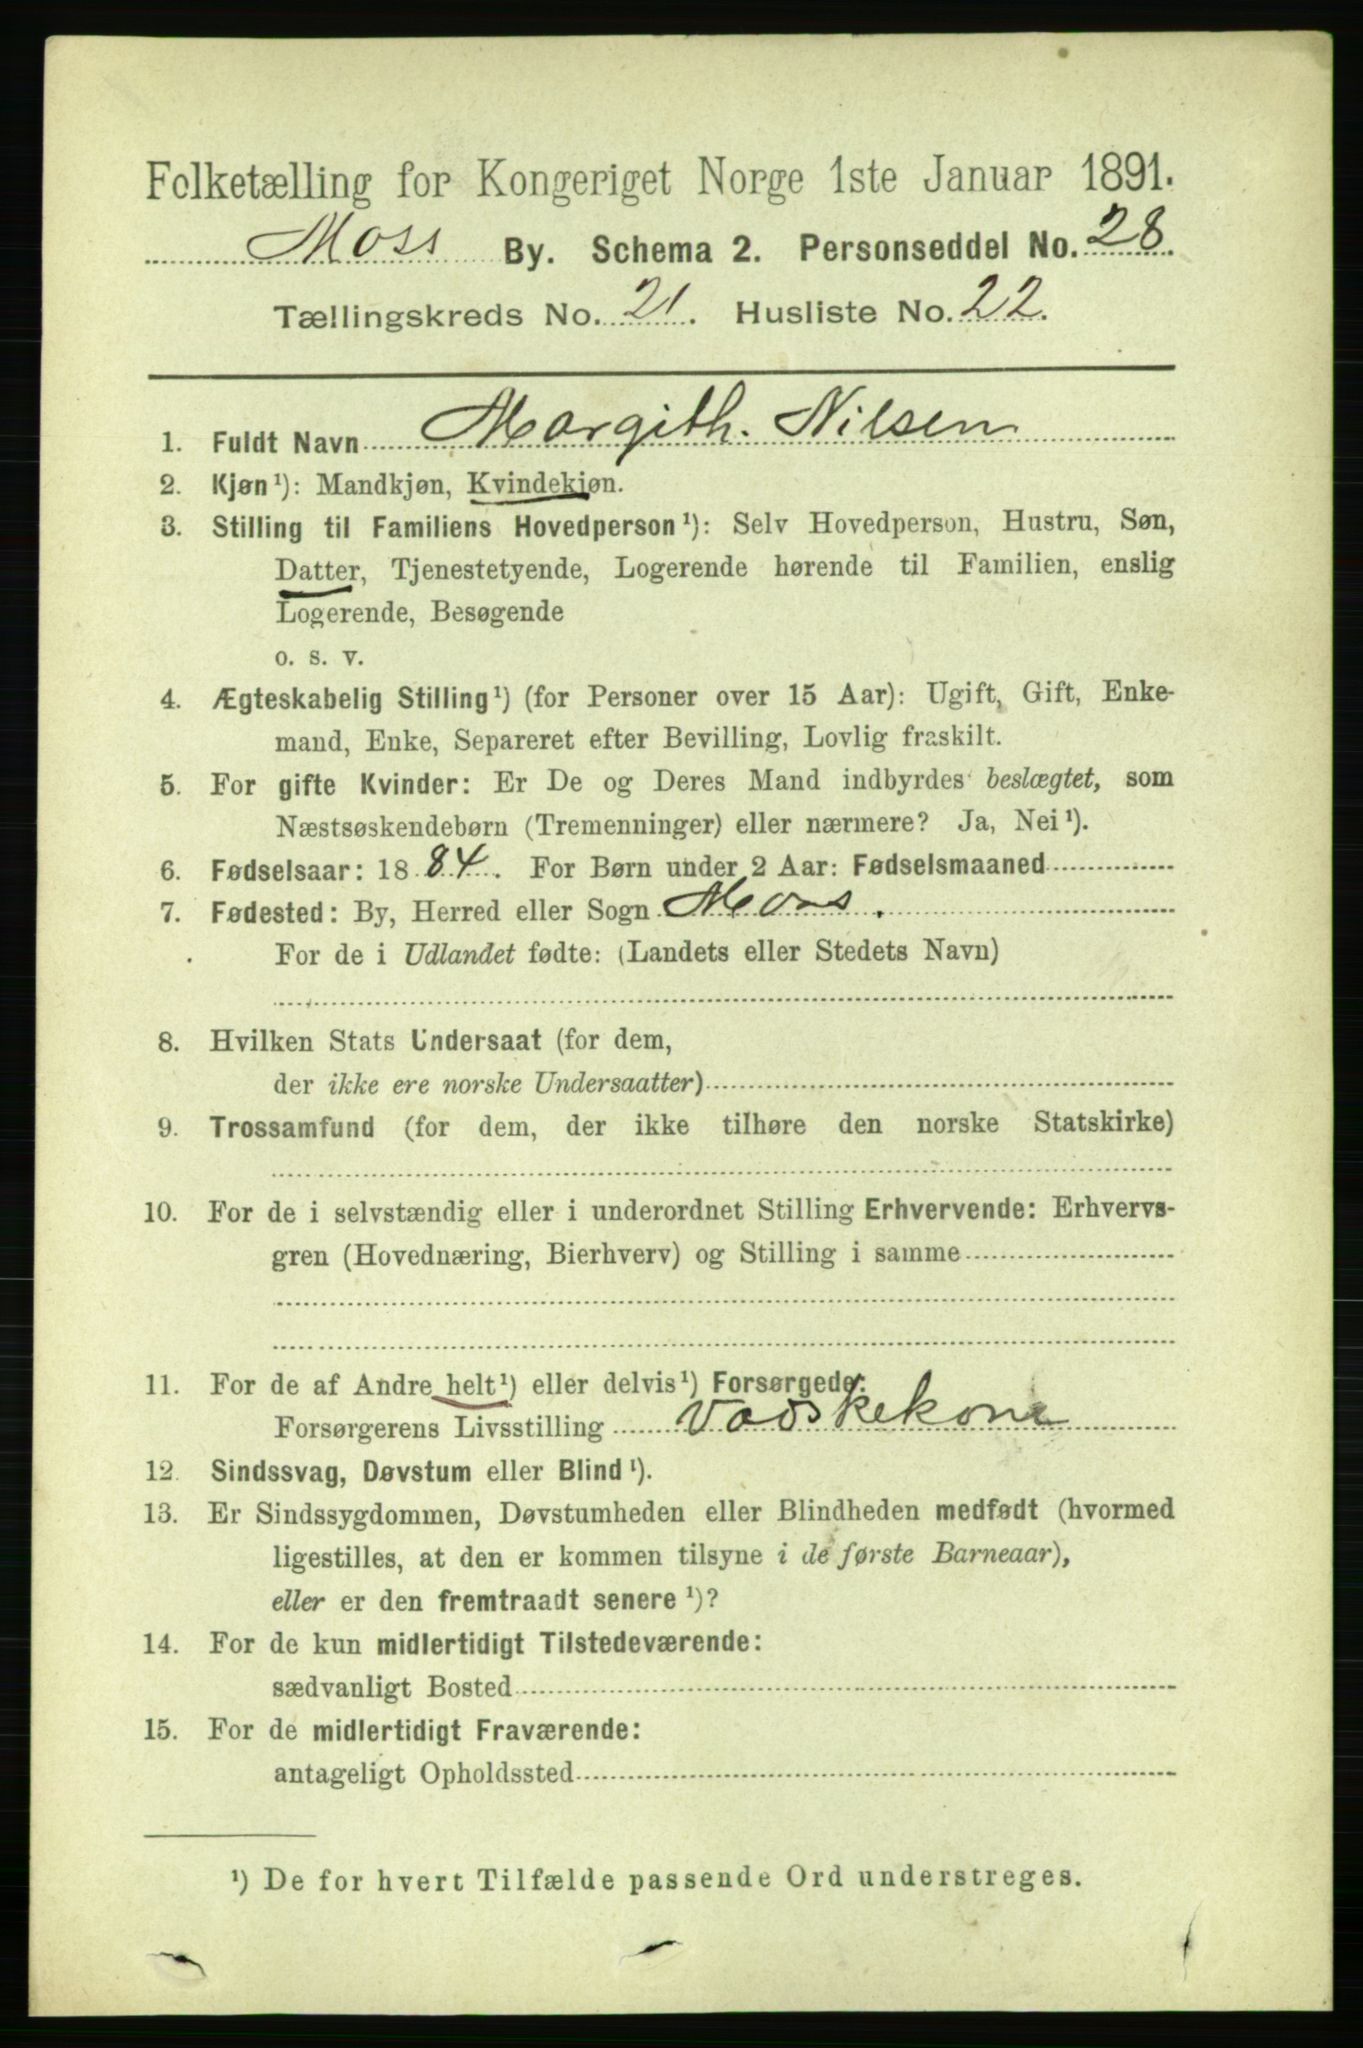 Folketælling for Kongeriget Norge 1ste Januar 1891.
Moss By. Schema 2. Personseddel No. 28.
Tællingskreds No. 21. Husliste No. 22.
1. Fuldt Navn Margith. Nilsen
2. Kjøn ¹): Mandkjøn, Kvindekjøn.
3. Stilling til Familiens Hovedperson ¹): Selv Hovedperson, Hustru, Søn,
Datter, Tjenestetyende, Logerende hørende til Familien, enslig
Logerende, Besøgende
o. s. v.
4. Ægteskabelig Stilling ¹) (for Personer over 15 Aar): Ugift, Gift, Enke-
mand, Enke, Separeret efter Bevilling, Lovlig fraskilt.
5. For gifte Kvinder: Er De og Deres Mand indbyrdes beslægtet, som
Næstsøskendebørn (Tremenninger) eller nærmere? Ja, Nei ¹).
6. Fødselsaar: 1884. For Børn under 2 Aar: Fødselsmaaned
7. Fødested: By, Herred eller Sogn Moss.
For de i Udlandet fødte: (Landets eller Stedets Navn)
8. Hvilken Stats Undersaat (for dem,
der ikke ere norske Undersaatter)
9. Trossamfund (for dem, der ikke tilhøre den norske Statskirke)
10. For de i selvstændig eller i underordnet Stilling Erhvervende: Erhvervs-
gren (Hovednæring, Bierhverv) og Stilling i samme
11. For de af Andre helt ¹) eller delvis ¹) Forsørgede:
Forsørgerens Livsstilling Vadskekone
12. Sindssvag, Døvstum eller Blind ¹).
13. Er Sindssygdommen, Døvstumheden eller Blindheden medfødt (hvormed
ligestilles, at den er kommen tilsyne i de første Barneaar),
eller er den fremtraadt senere ¹)?
14. For de kun midlertidigt Tilstedeværende:
sædvanligt Bosted
15. For de midlertidigt Fraværende:
antageligt Opholdssted
¹) De for hvert Tilfælde passende Ord understreges.